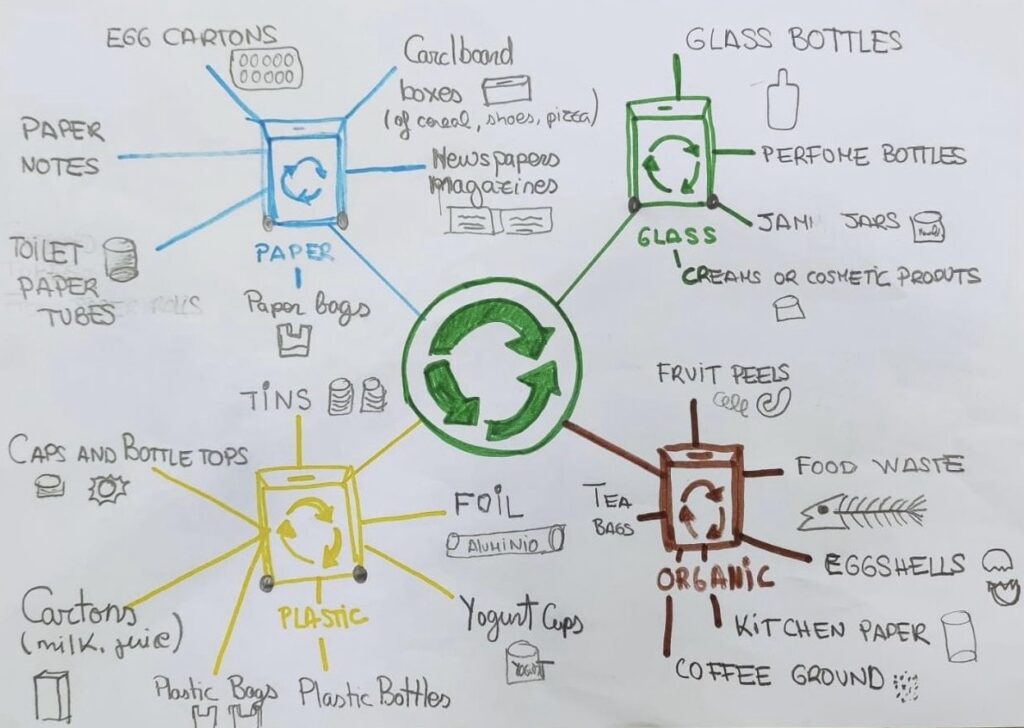 EGG CARTONS
Cardboard
boxes
(of cereal, shoes, pizza)
PAPER
NOTES
Newspapers
magazines
TOILET
PAPER
TUBES
ROLLS
PAPER
Paper bags
GLASS BOTTLES
PERFOME BOTTLES
JAM JARS
GLASS
CREAMS OR COSMETIC PRODUTS
TINS
CAPS AND BOTTLE TOPS
FOIL
ALUMINIO
Cartons
(milk, juice)
PLASTIC
Yogurt Cups
YOGURT
Plastic Bags
Plastic Bottles
FRUIT PEELS
FOOD WASTE
TEA
BAGS
EGGSHELLS
ORGANIC
KITCHEN PAPER
COFFEE GROUND